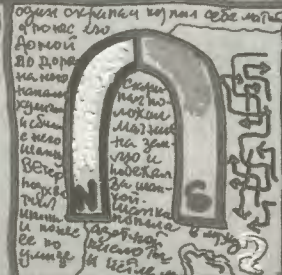 один скрипач купил себе магнит
и понес его
домой
по дороге
на него
напали
хулиганы
и сбили
с него
шапку
Ветер
подхва
тил
шапку
и понес
ее по
улице
Скри
пач по
ложил
магнит
на зем
лю и
побежал
за шап
кой.
Шапка
попала
в лужу
азотной
кислоты
и истле
N
S